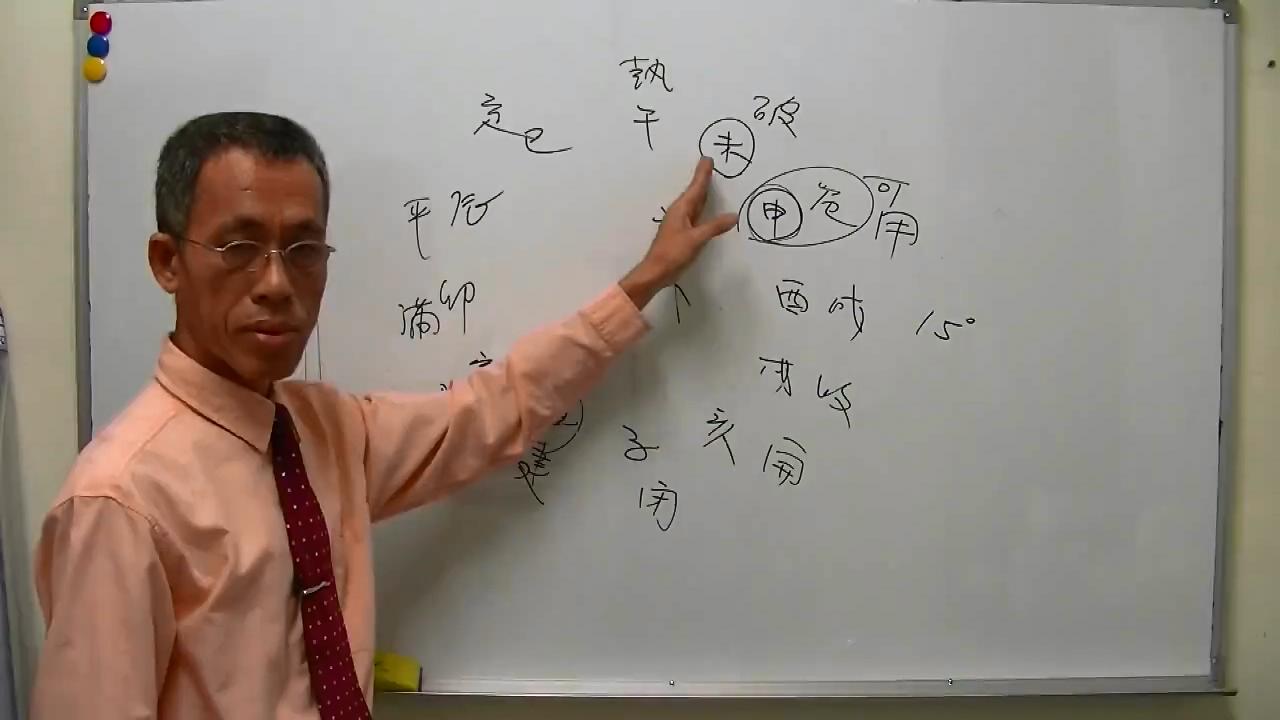 執
定 巳
午
破
未
平 辰
申 危
可
用
滿 卯
酉 成
15°
戌 收
子
亥
開
建
閉